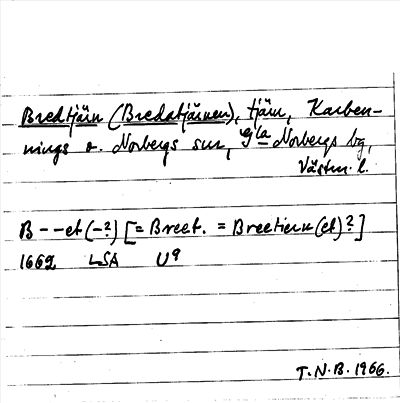 Bredtjärn (Bredatjärnen), tjärn, Karben-
nings o. Norbergs snr, Gla Norbergs bg,
Västm. l.
B--et (-?) [= Breet. = Breetiern(et)?]
1662 LSA U9
T.N.B. 1966.